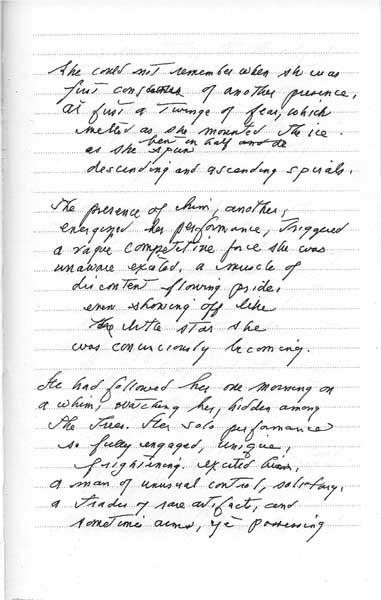 She could not remember when she was
first conscious of another presence,
at first a twinge of fear, which
melted as she mounted the ice.
bent in half and de
as she spun
descending and ascending spirals.
The presence of him, another,
energyzed her performance, triggered
a vague competitive force she was
unaware existed, a muscle of
discontent flowing pride,
even showing off like
the little star she
was consciously becoming.
He had followed her one morning on
a whim, watching her, hidden among
the trees. Her solo performance
so fully engaged, unique,
frightening. excited him,
a man of unusual control, solitary,
a trader of rare artifacts, and
sometimes arms, yet possessing